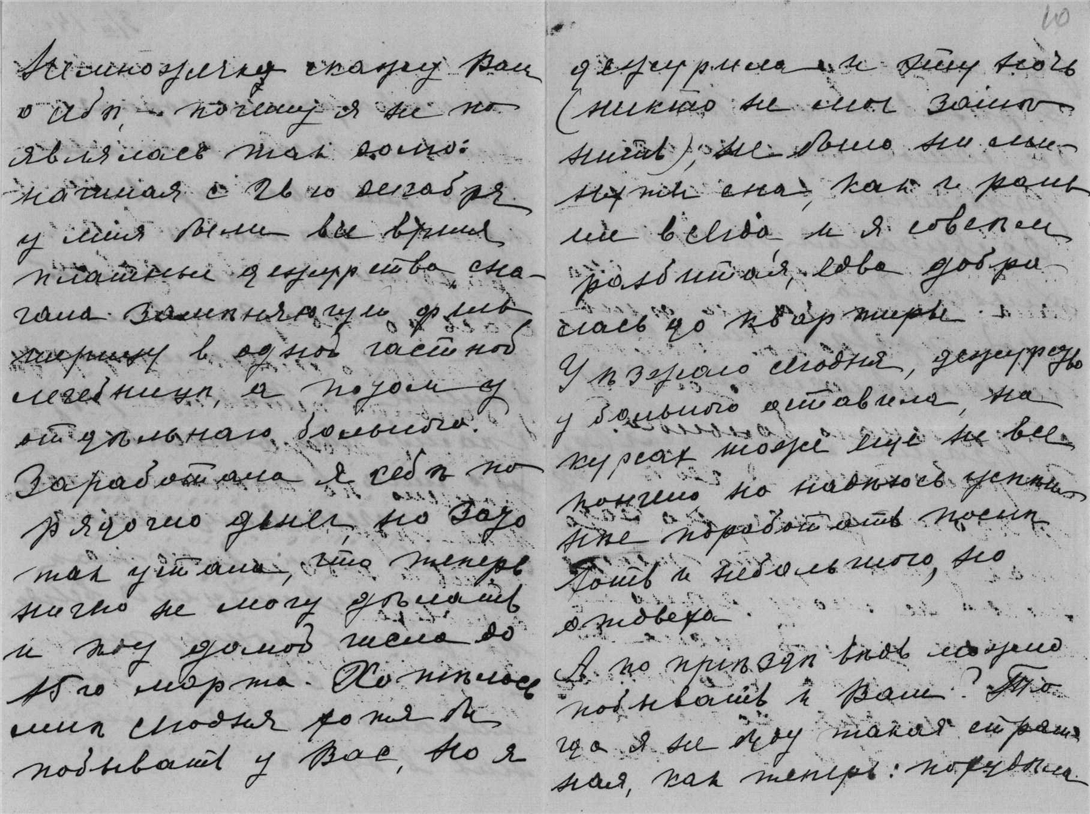 10
Немножечко скажу Вам
о себѣ, почему я не по
являлась так долго:
начиная с 26го декабря
у меня были все время
платные дежурства, сна-
чала замѣняющую фельд
шерицу в одной частной
лечебницѣ, а потом у
отдѣльнаго больного.
Заработала я себѣ по
рядочно денег, но зато
так устала, что теперь
ничего не могу дѣлать
и ѣду домой числа до
15го марта. Хотѣлось
мнѣ сегодня хотя бы
побывать у Вас, но я
дежурила и эту ночь
(никто не мог замѣ-
нить), не было ни ми-
нуты сна, как и рань
ше всегда и я совсем
разбитая, едва добра
лась до квартиры.
Уѣзжаю сегодня, дежурство
у больного оставила, на
курсах тоже еще не все
кончено но надѣюсь успеш
нѣе поработать послѣ
хоть и небольшого, но
отдыха.
А по приѣздѣ вновь можно
побывать к Вам? То
гда я не буду такая страш
ная, как теперь: похудѣла